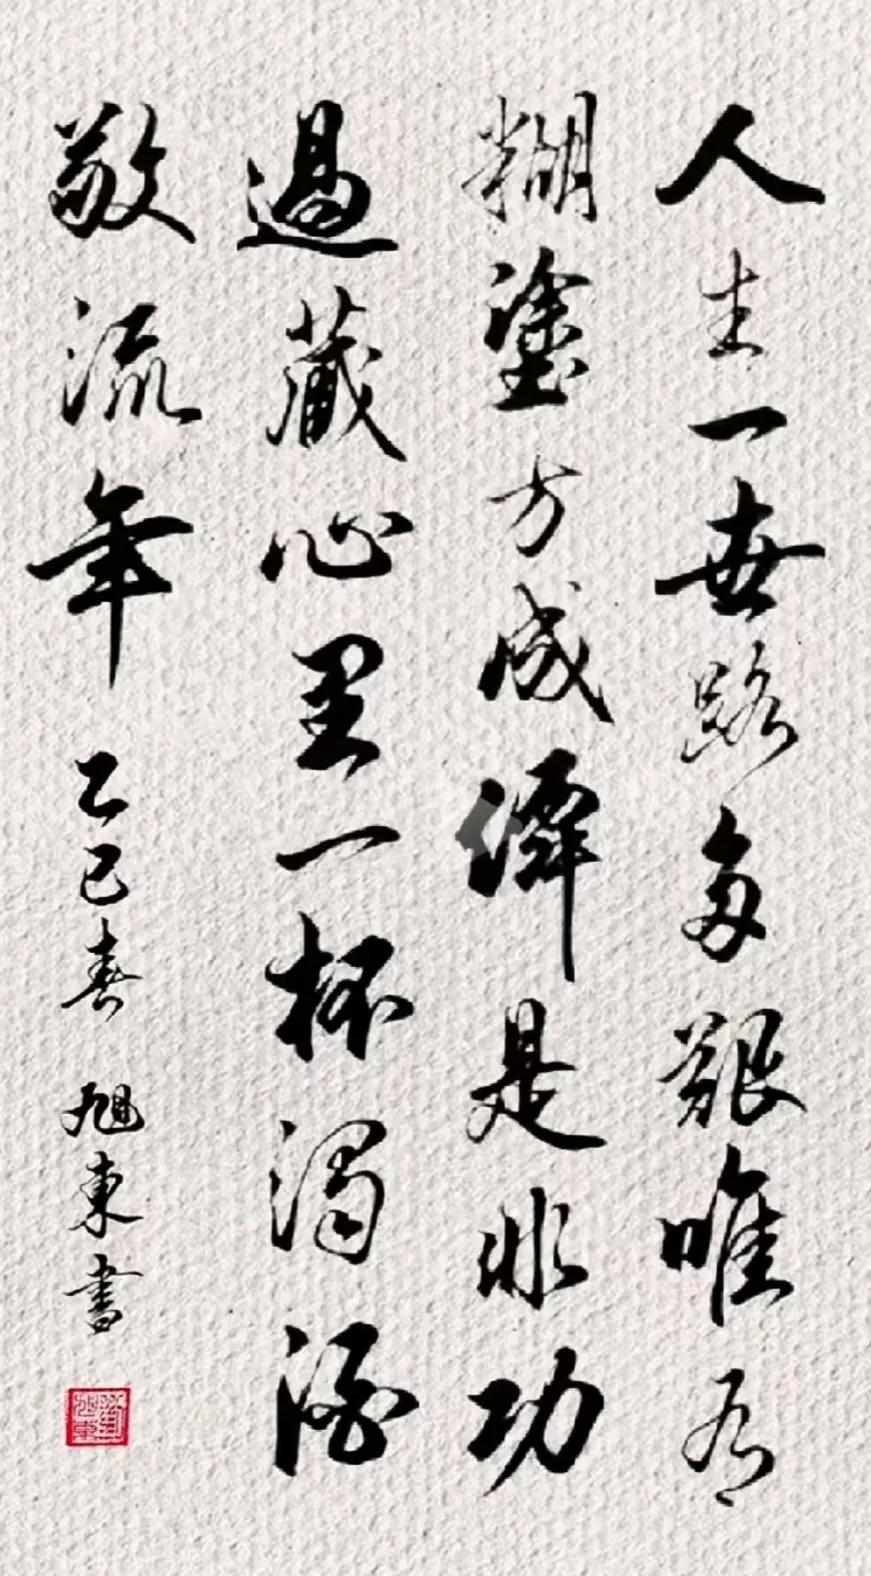 人生一世路多艱唯有
糊塗方成是非功
過藏心里一杯濁酒
敬流年 乙巳春 旭東書